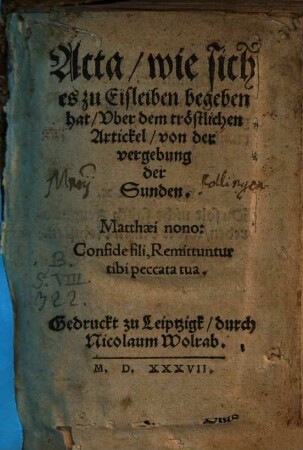 Acta / wie sich
es zu Eisleiben begeben
hat / Vber dem tröstlichen
Artickel / von der
vergebung
der
Sunden.
Matthæi nono:
Confide fili, Remittuntur
tibi peccata tua.
B
S. VIII
322.
Gedruckt zu Leiptzigk / durch
Nicolaum Wolrab.
M. D. XXXVII.